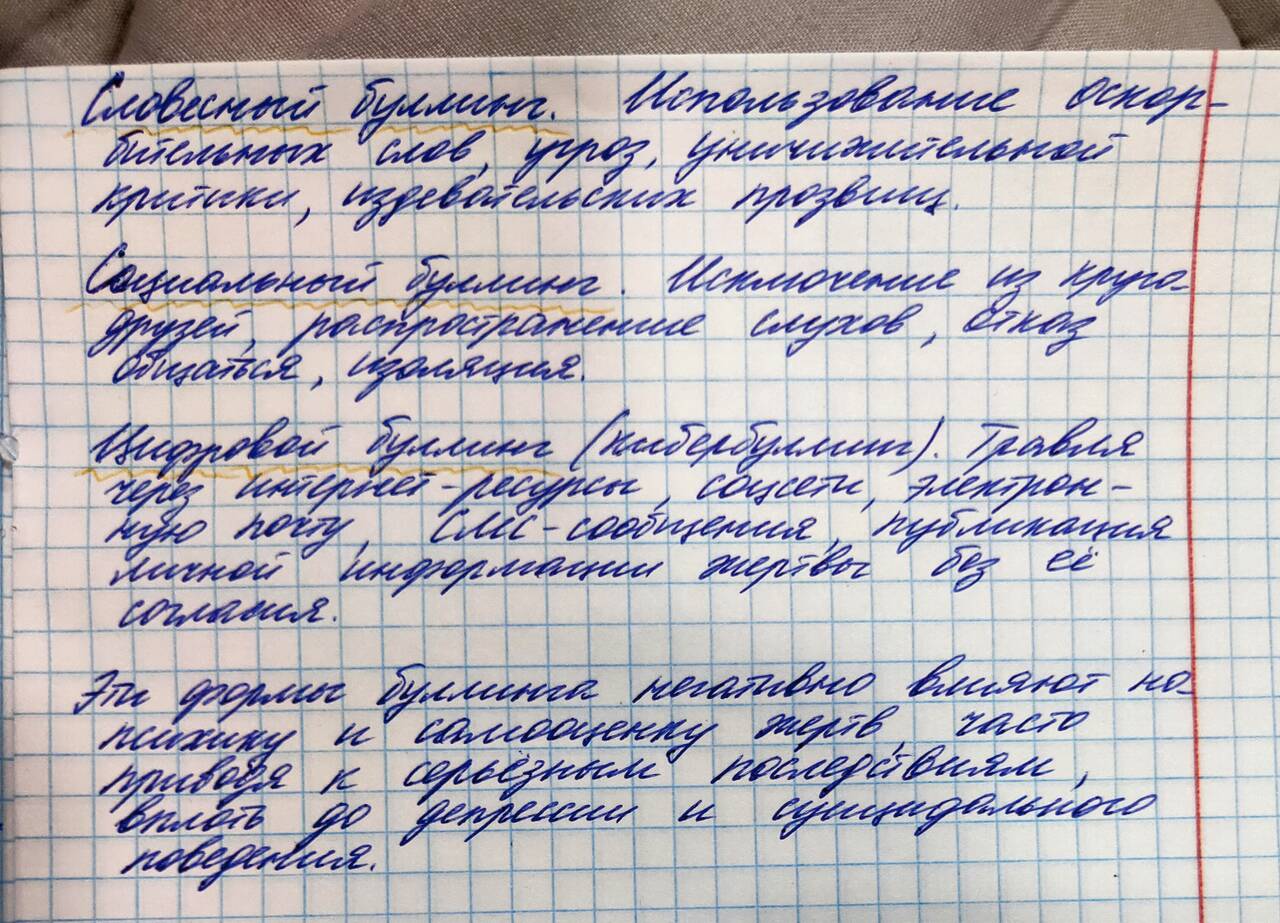 Словесный буллинг. Использование оскор-
бительных слов, угроз, уничижительной
критики, издевательских прозвищ.
Социальный буллинг. Исключение из круга
друзей, распространение слухов, отказ
общаться, изоляция.
Цифровой буллинг (кибербуллинг). Травля
через интернет-ресурсы, соцсети, электрон-
ную почту, СМС-сообщения, публикация
личной информации жертвы без её
согласия.
Эти формы буллинга негативно влияют на
психику и самооценку жертв, часто
приводя к серьёзным последствиям,
вплоть до депрессии и суицидального
поведения.